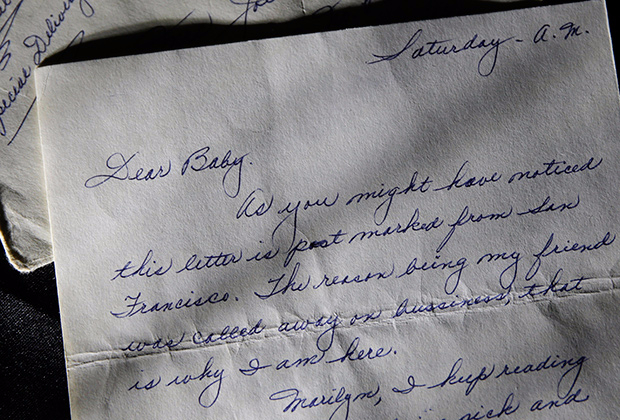 Special Delivery
Saturday - A.M.
Dear Baby.
As you might have noticed
this letter is post marked from San
Francisco. The reason being my friend
was called away on bussiness, that
is why I am here.
Marilyn, I keep reading
sick and